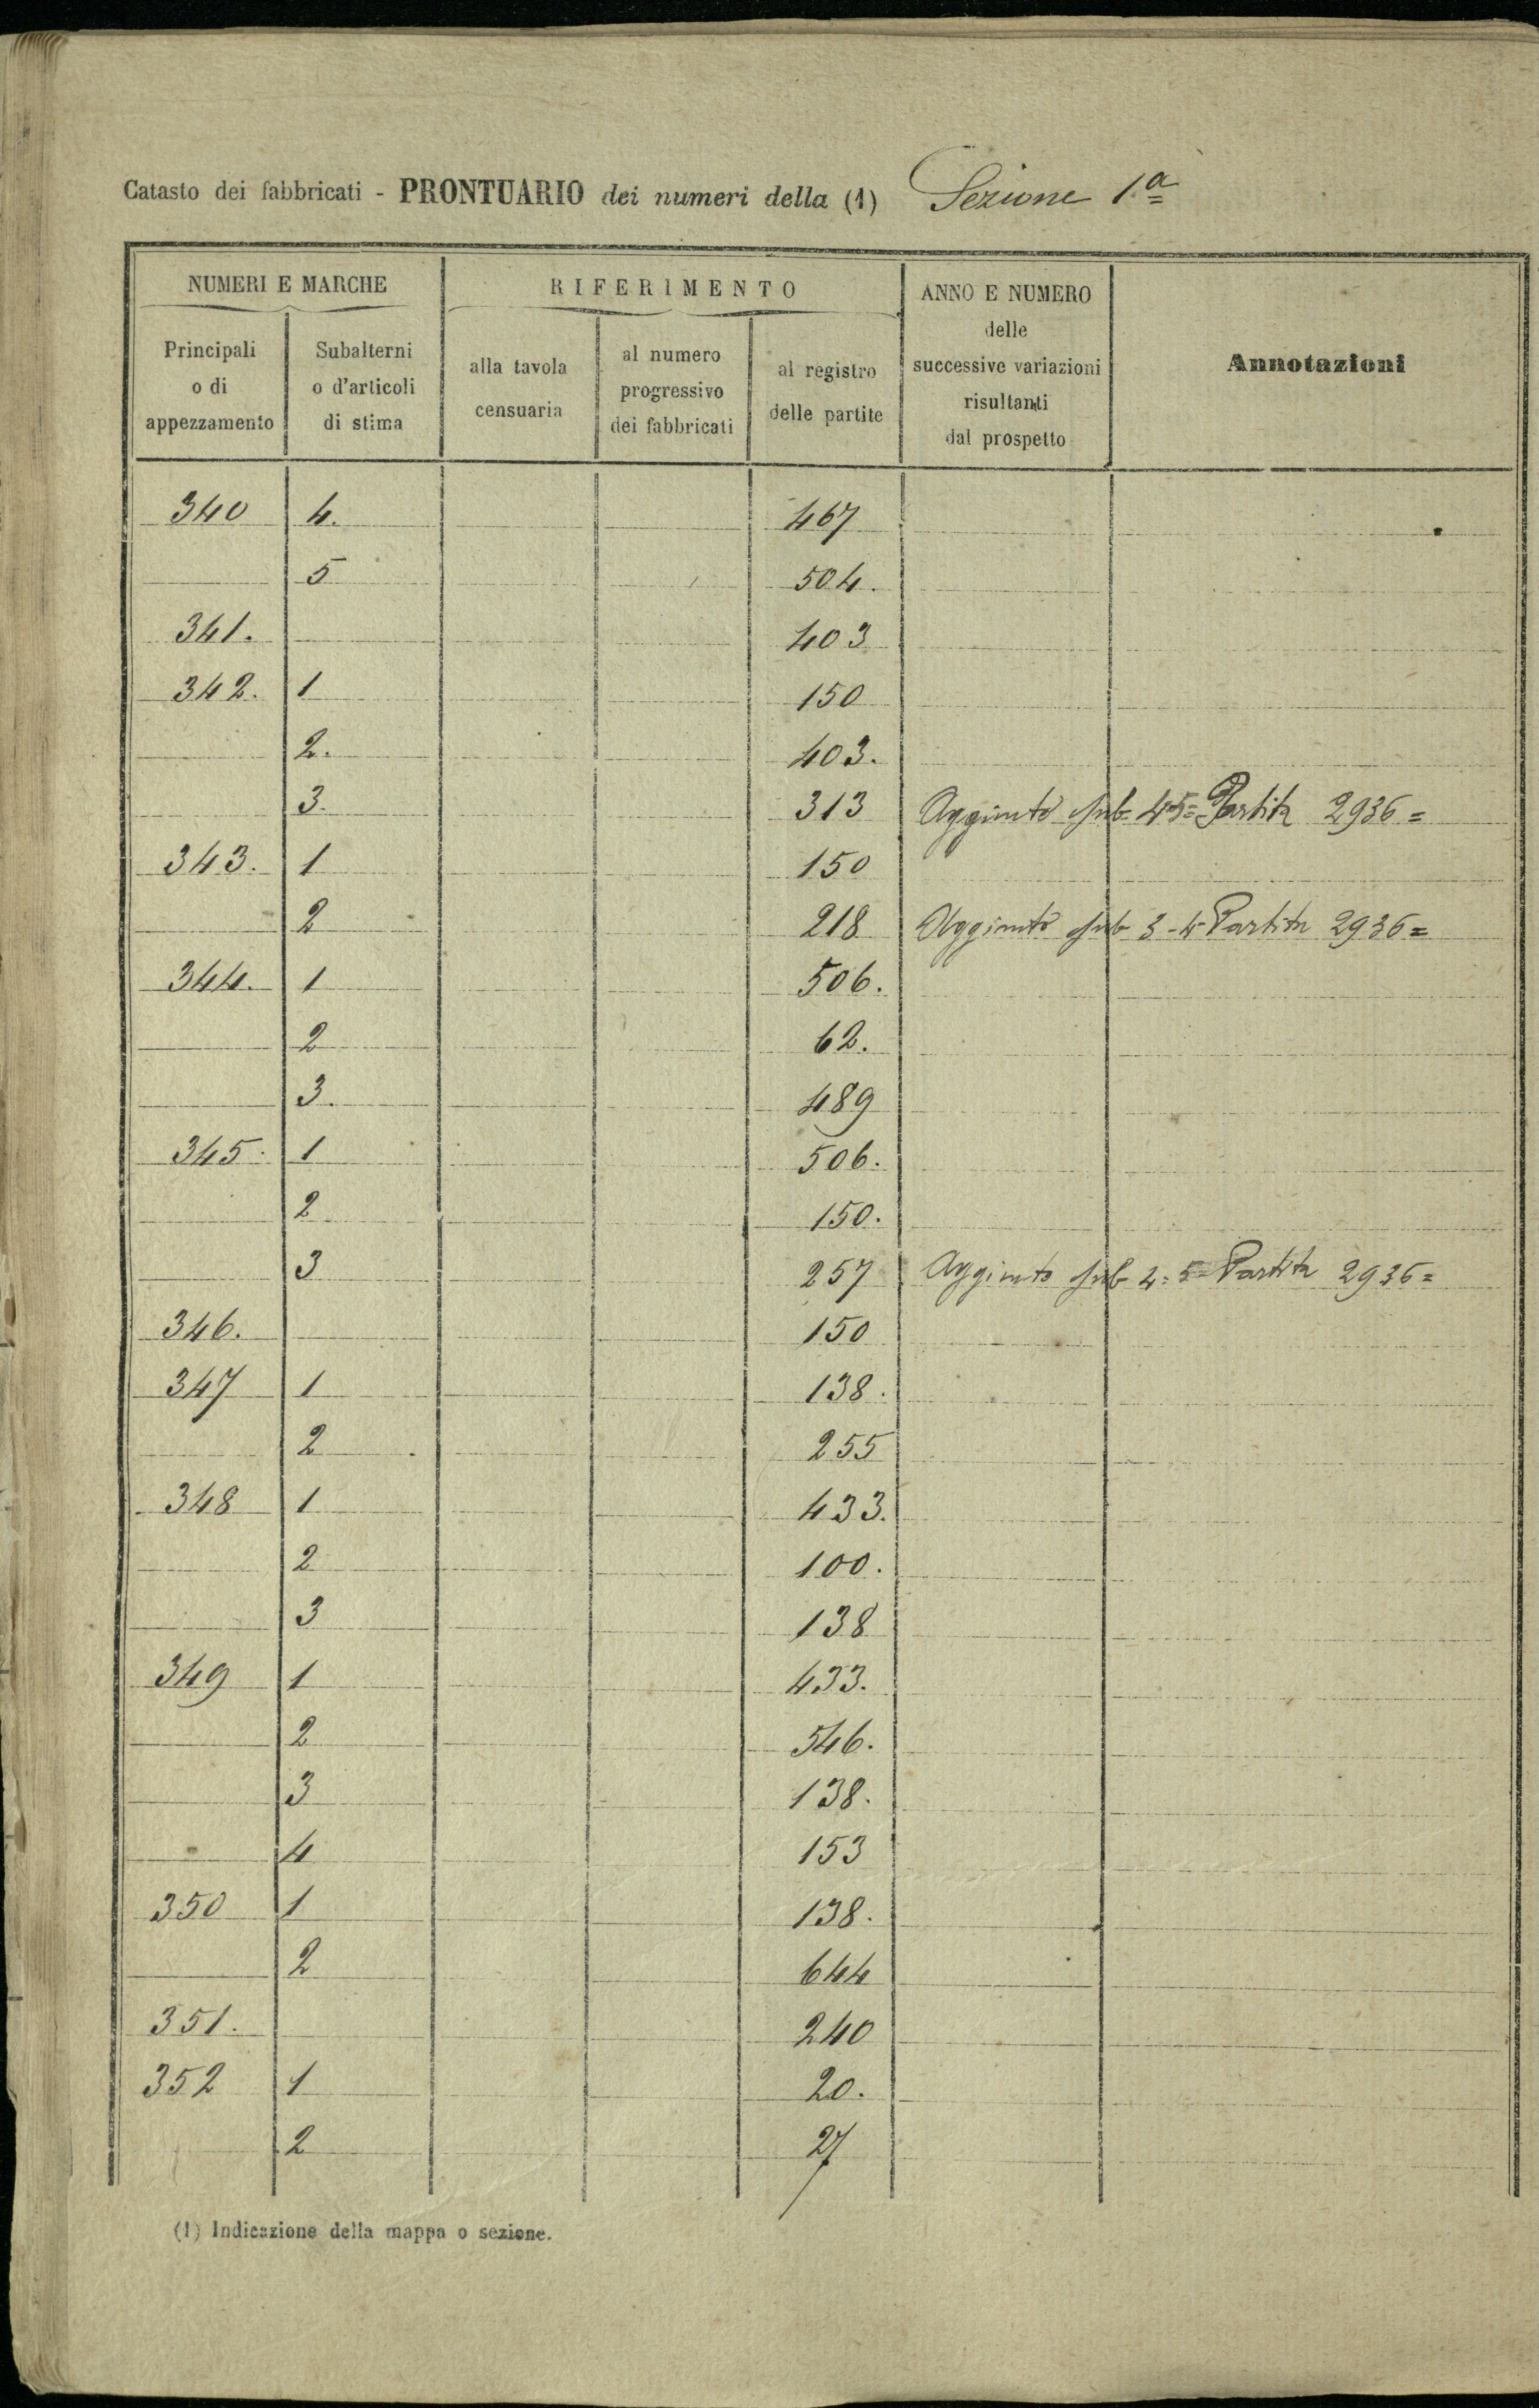 Catasto dei fabbricati - PRONTUARIO dei numeri della (1) Sezione 1ª
NUMERI E MARCHE
RIFERIMENTO
ANNO E NUMERO
delle
successive variazioni
risultanti
dal prospetto
Annotazioni
Principali
o di
appezzamento
Subalterni
o d'articoli
di stima
alla tavola
censuaria
al numero
progressivo
dei fabbricati
al registro
delle partite
340 4. 467
5 504.
341. 403
342. 1 150
2. 403.
3. 313 Aggiunto sub 4-5= Partita 2936=
343. 1 150
2 218 Aggiunto sub 3-4- Partita 2936=
344. 1 506.
2 62.
3. 489
345. 1 506.
2 150.
3 257 Aggiunto sub 4=5= Partita 2936=
346. 150
347 1 138.
2 255
348 1 433.
2 100.
3 138
349 1 433.
2 546.
3 138.
4 153
350 1 138.
2 644
351. 240
352 1 20.
2 27
(1) Indicazione della mappa o sezione.